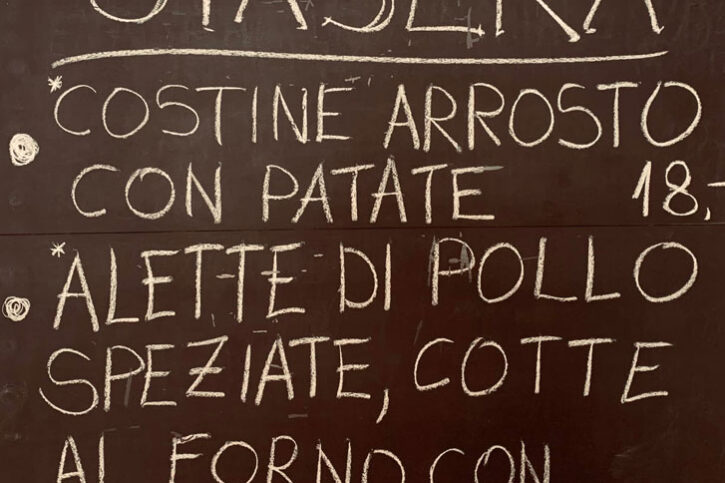 STASERA
* COSTINE ARROSTO
CON PATATE 18,-
* ALETTE DI POLLO
SPEZIATE, COTTE
AL FORNO CON